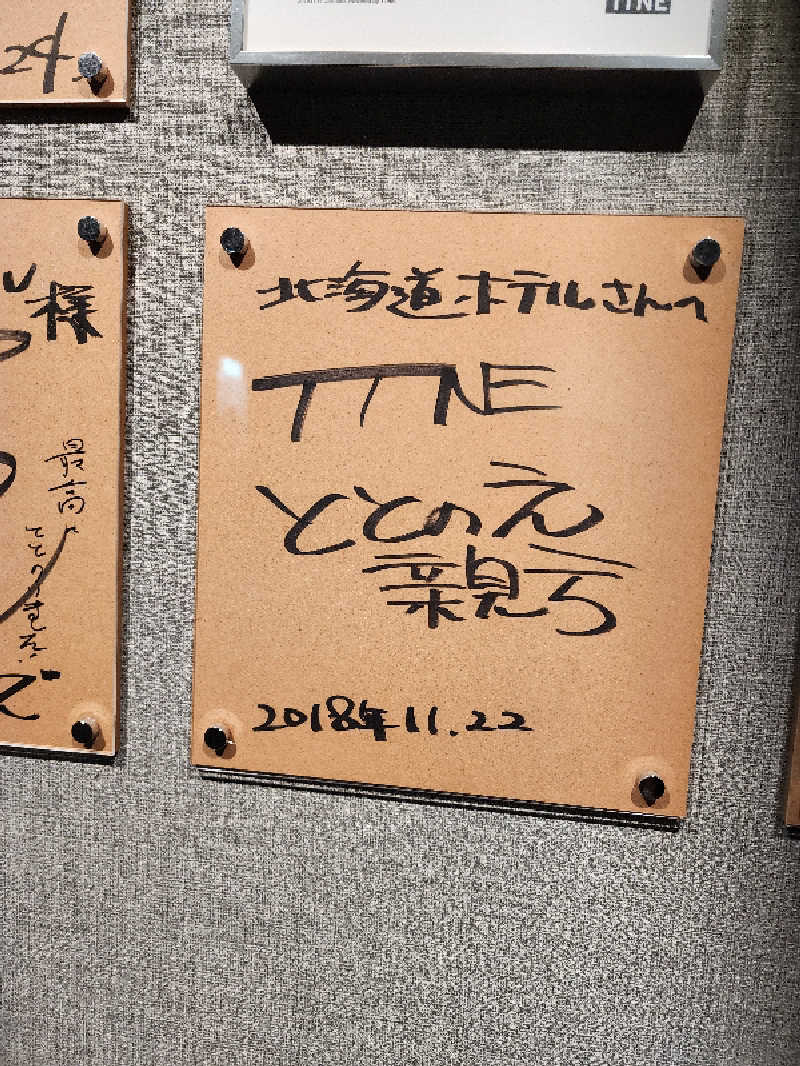 TTNE
24.
様
最高に
ととのいました!
北海道ホテルさんへ
TTNE
ととのえ
親方
2018年11.22